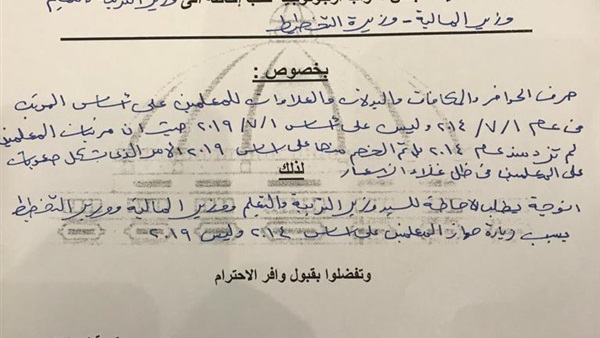 وزير المالية - وزيرة التخطيط
بخصوص :
صرف الحوافز والمكافآت والبدلات والعلاوات للمعلمين على أساس المرتب
فى عام ٢٠١٤/٧/١ وليس على أساس ٢٠١٩/٧/١ حيث أن مرتبات المعلمين
لم تزد منذ عام ٢٠١٤ الخصم منها على أساس ٢٠١٩ الأمر الذى شكل صعوبات
على المعلمين فى ظل غلاء الأسعار
لذلك
اتوجه بطلب الإحاطة للسيد وزير التربية والتعليم ووزير المالية ووزير التخطيط
بسبب المعلمين على أساس ٢٠١٤ وليس ٢٠١٩
وتفضلوا بقبول وافر الاحترام